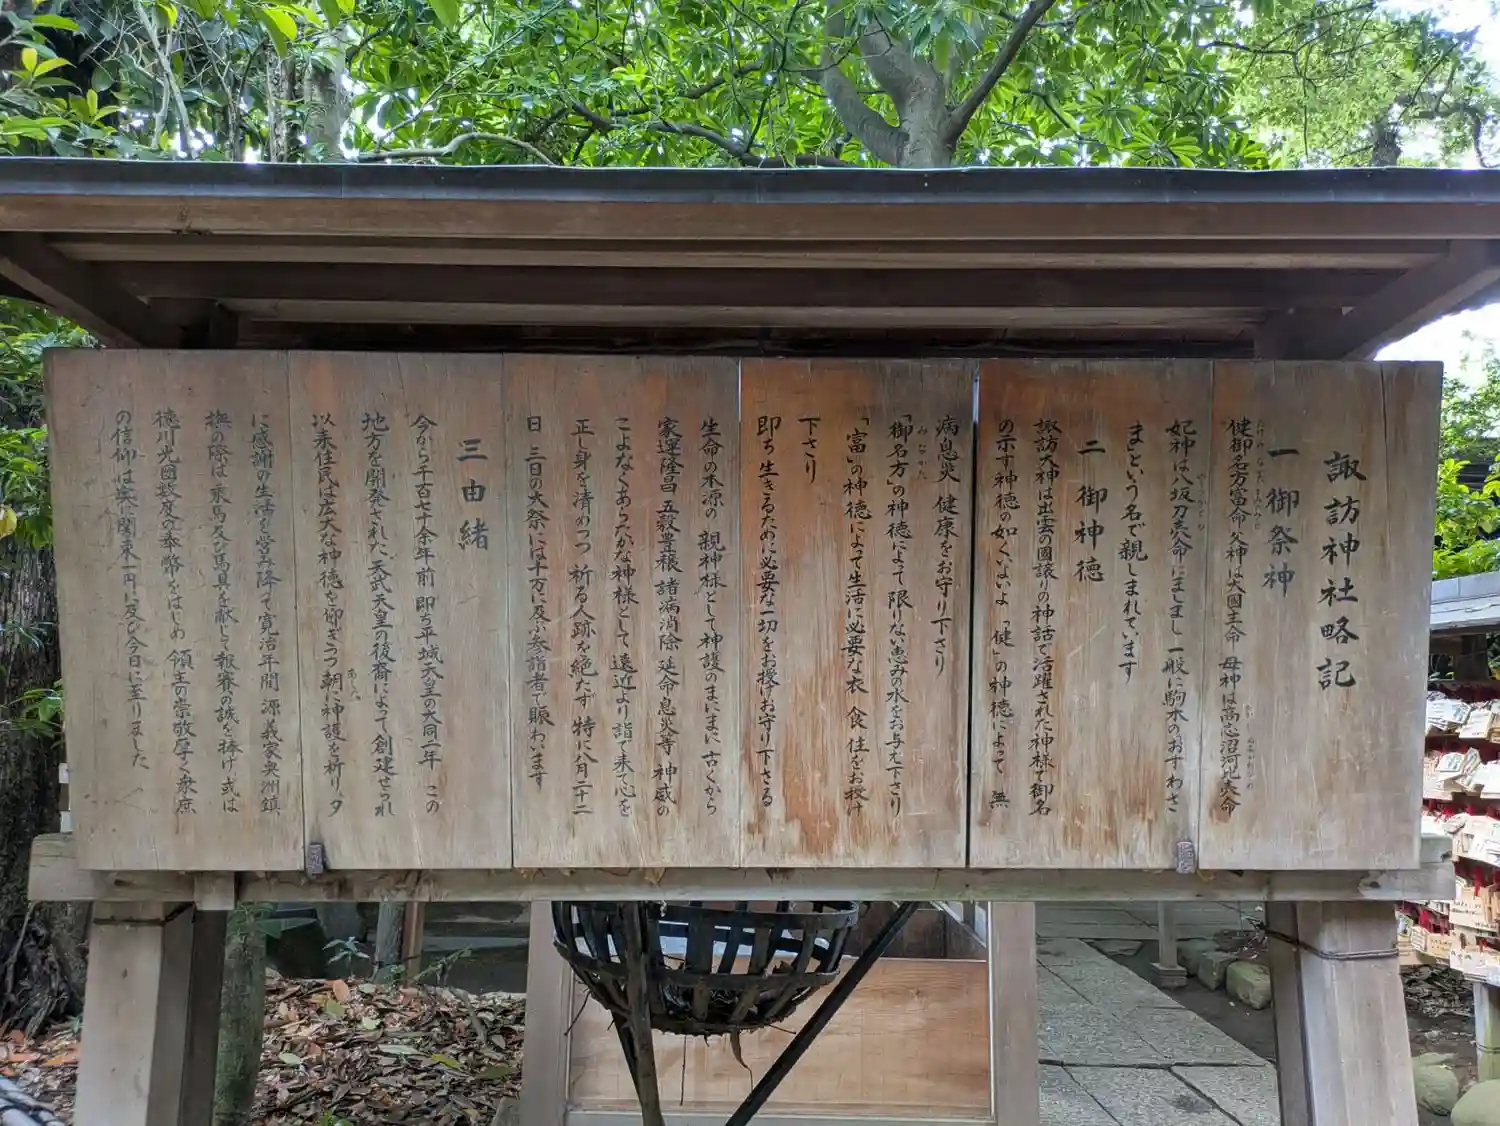 諏訪神社略記
一 御祭神
健御名方富命 父神は大國主命 母神は高志沼河比売命
妃神は八坂刀売命にましまし 一般に駒木のおすわさ
まという名で親しまれています
二 御神徳
諏訪大神は出雲の國譲りの神話で活躍された神様で御名
の示す神徳の如く、いよいよ「健」の神徳によって 無
病息災 健康をお守り下さり
「御名方」の神徳によって限りない恵みの水をお与え下さり
「富」の神徳によって生活に必要な衣 食 住をお授け
下さり
即ち生きるために必要な一切をお授けお守り下さる
生命の本源の 親神様として神護のまにまに 古くから
家運隆昌 五穀豊穣 諸病消除 延命息災等 神威の
こよなくあらたかな神様として 遠近より詣で来て心を
正し身を清めつつ 祈る人跡を絶たず 特に八月二十二
日 三日の大祭には千万に及ぶ参詣者で賑わいます
三 由緒
今から千百七十余年前 即ち平城天皇の大同二年 この
地方を開発された、天武天皇の後裔によって創建せられ
以来住民は広大な神徳を仰ぎつつ朝に神護を祈り、夕
に感謝の生活を営み降って寛治年間 源義家奥洲鎮
撫の際は 乗馬及び馬具を献じて報賽の誠を捧げ 或は
徳川光圀数度の奉幣をはじめ 領主の崇敬厚く衆庶
の信仰は 関東一円に及び今日に至りました